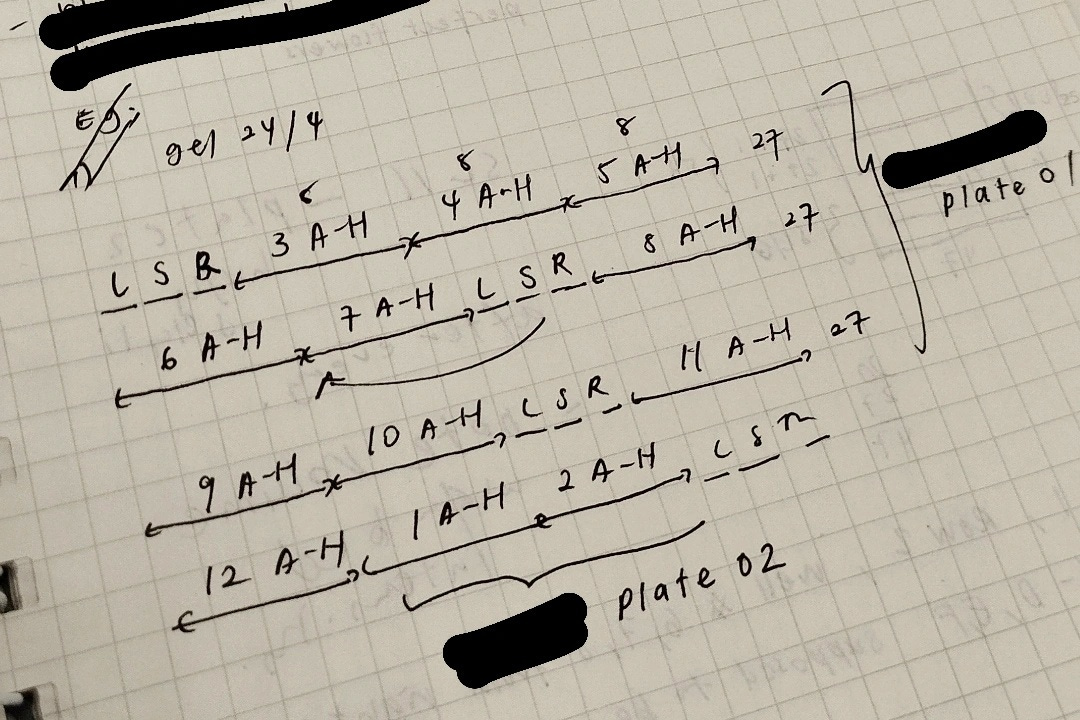 gel 24/4
8 8 8
L S R 3 A-H 4 A-H 5 A-H 27
6 A-H 7 A-H L S R 8 A-H 27
plate 01
9 A-H 10 A-H L S R 11 A-H 27
12 A-H 1 A-H 2 A-H L S R
plate 02